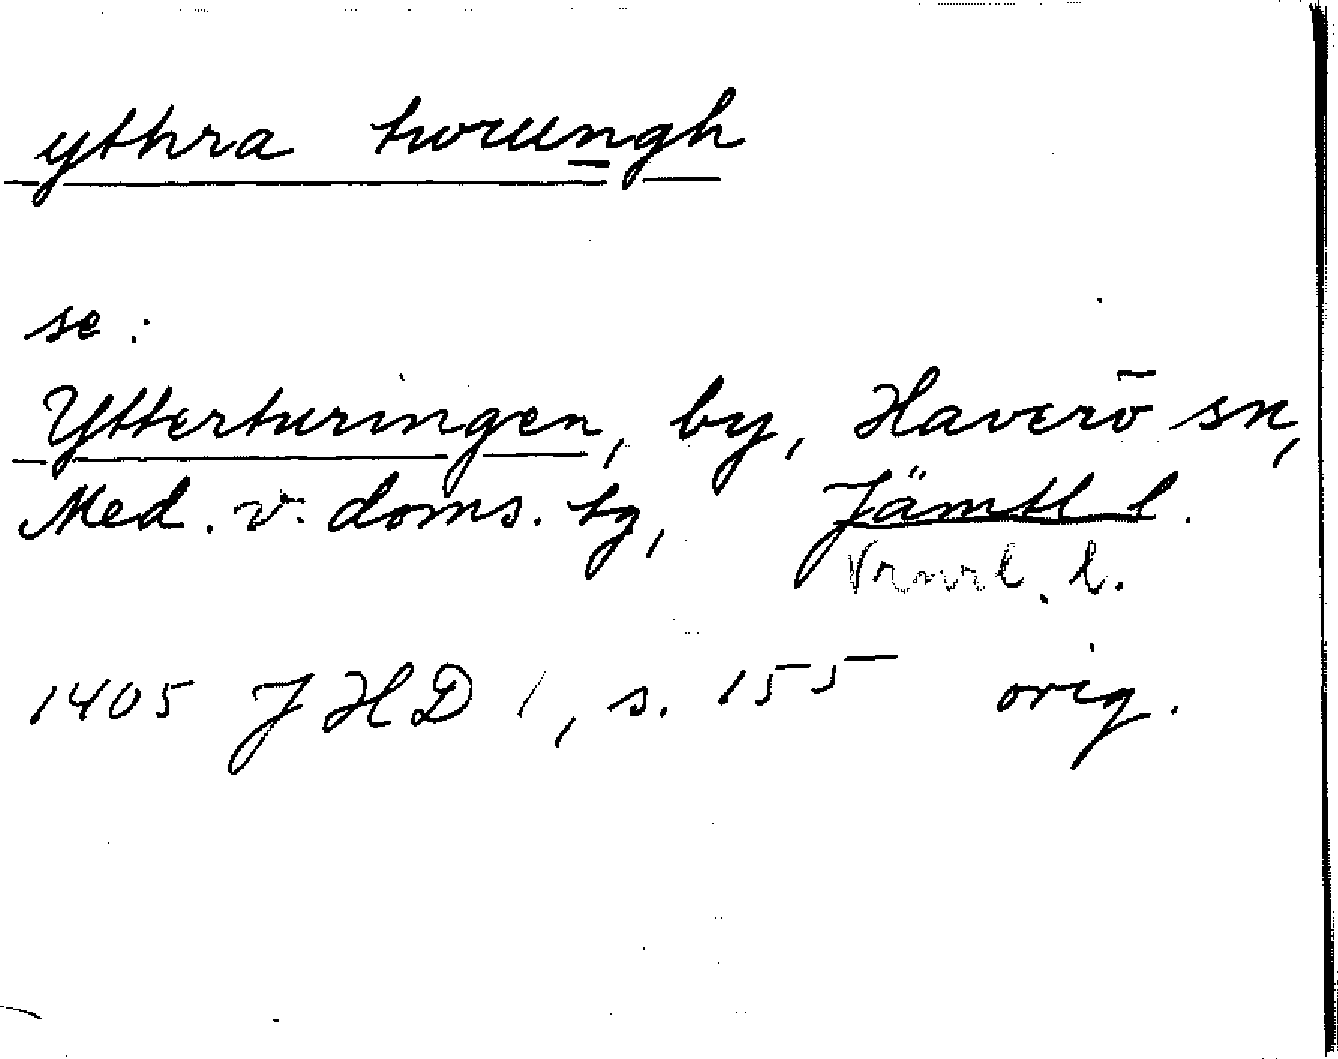 ythra twrungh
se:
Ytterturingen, by, Haverö sn,
Med. v. doms. tg, Jämtl l.
Vrnrl. l.
1405 JHD 1, s. 155 orig.